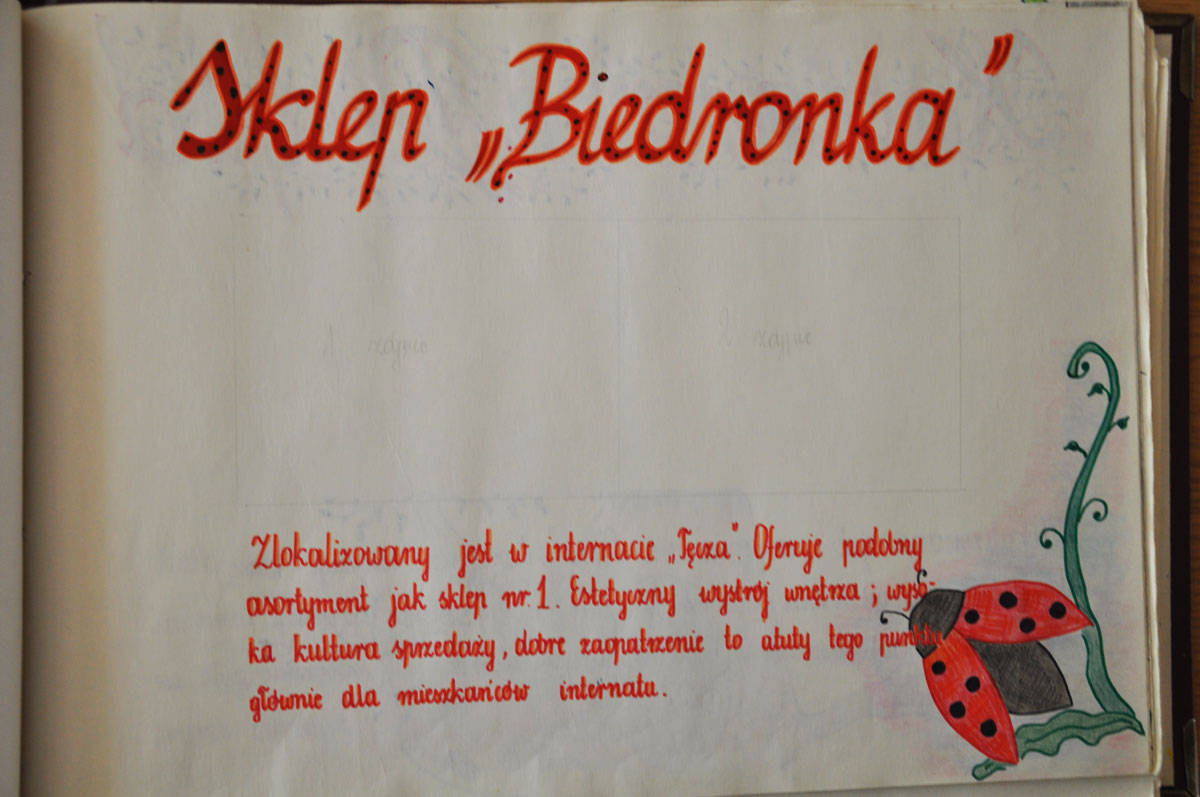 Sklep „Biedronka”
1. zdjęcie 2 zdjęcie
Zlokalizowany jest w internacie „Tęcza”. Oferuje podobny
asortyment jak sklep nr. 1. Estetyczny wystrój wnętrza ; wyso-
ka kultura sprzedaży, dobre zaopatrzenie to atuty tego punktu
głównie dla mieszkańców internatu.